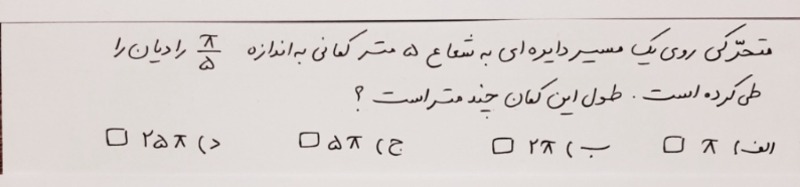 متحرّکی روی یک مسیر دایره ای به شعاع ۵ متر کمانی به اندازه π/۵ رادیان را
طی کرده است. طول این کمان چند متر است؟
الف) π □ ب) ۲π □ ج) ۵π □ د) ۲۵π □